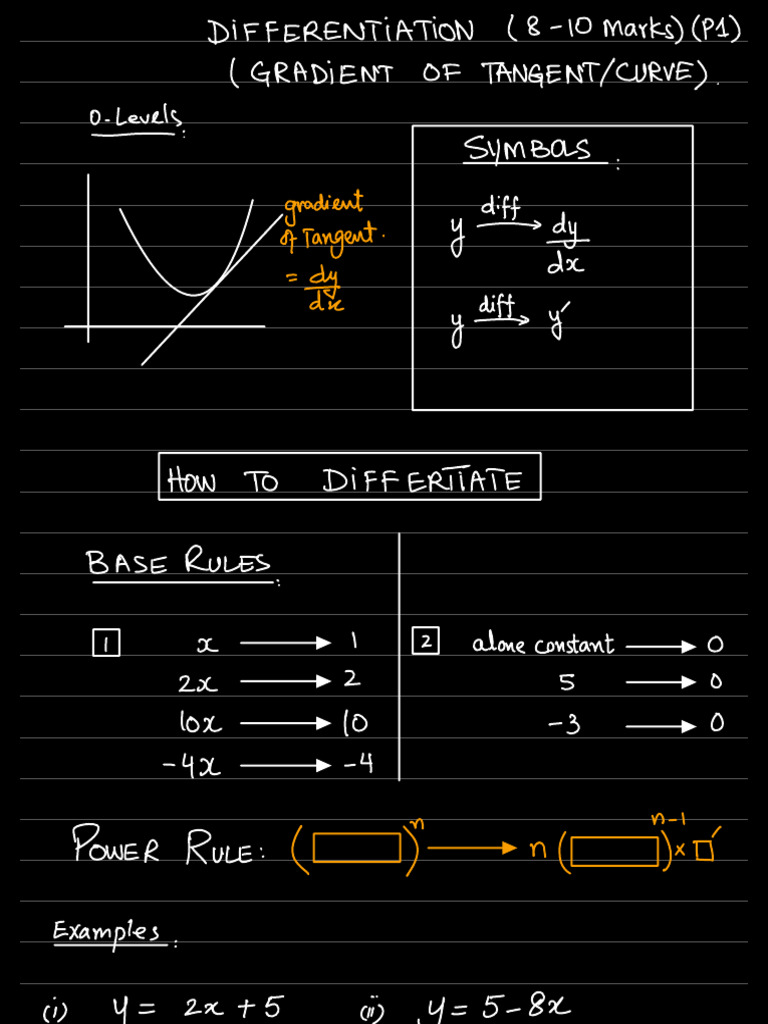 DIFFERENTIATION (8-10 marks) (P1)
(GRADIENT OF TANGENT/CURVE).
O-Levels:
gradient
of Tangent.
= dy/dx
SYMBOLS:
y diff→ dy/dx
y diff→ y′
HOW TO DIFFERTIATE
BASE RULES:
1 x → 1
2x → 2
10x → 10
-4x → -4
2 alone constant → 0
5 → 0
-3 → 0
POWER RULE: (▭)ⁿ → n(▭)ⁿ⁻¹ × □′
Examples:
(i) y = 2x + 5 (ii) y = 5 - 8x